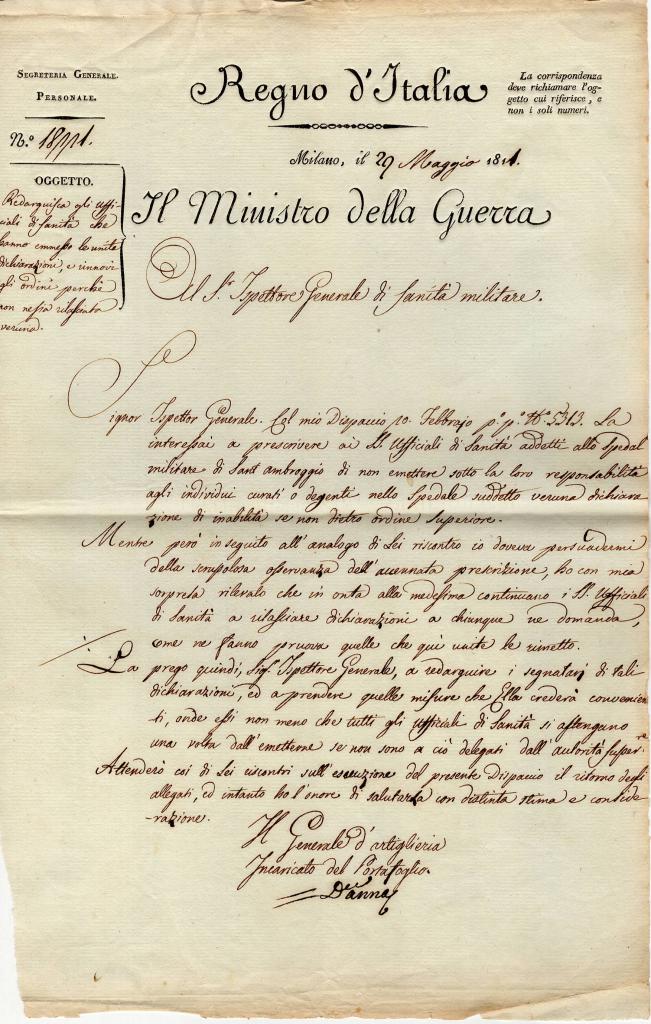 Segreteria Generale.
Personale.
N.°
Regno d'Italia
La corrispondenza
deve richiamare l'og-
getto cui riferisce, e
non i soli numeri.
Milano, il 29 Maggio 1811.
OGGETTO.
Redarguisca gli uffi-
ciali di sanità che
hanno emmesso le unite
dichiarazioni, e innovi
gli ordini perchè
non nessia rilasciata
veruna.
Il Ministro della Guerra
Al S.r Ispettore Generale di sanità militare.
Signor Ispettor Generale. Col mio Dispaccio 10. Febbrajo p.° p.° N.° 5313. La
interessai a prescrivere ai SS. Ufficiali di Sanità addetti allo spedal
militare di Sant'ambroggio di non emettere sotto la loro responsabilità
agli individui curati o degenti nello Spedale suddetto veruna dichiara
zione di inabilità se non dietro ordine superiore.
Mentre però in seguito all'analogo di Lei riscontro io doveva persuadermi
della scrupolosa osservanza dell'accennata prescrizione, ho con mia
sorpresa rilevato che in onta alla medesima continuano i SS. Ufficiali
di Sanità a rilasciare dichiarazioni a chiunque ne domanda,
come ne fanno pruova quelle che quì unite le rimetto.
La prego quindi, Sig.r Ispettore Generale, a redarguire i segnatarj di tali
dichiarazioni, ed a prendere quelle misure che Ella crederà convenien
ti, onde essi non meno che tutti gli Ufficiali di Sanità si astengano
una volta dall'emetterne se non sono a ciò delegati dall'autorità super.re
Attenderò coi di Lei riscontri sull'esecuzione del presente Dispaccio il ritorno degli
allegati, ed intanto ho l'onore di salutarla con distinta stima e conside
-razione.
Il Generale d'artiglieria
Incaricato del Portafoglio.
Danna